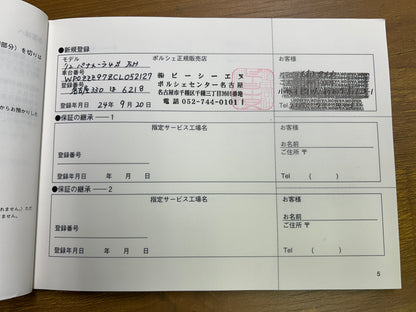 部分）を切りは
からお預かりした
れません。ただ
ません。
●新規登録
モデル
ポルシェ正規販売店
お客様
車台番号
WP0ZZZ97ZCL052127
㈱ピーシーエヌ
ポルシェセンター名古屋
名古屋市千種区千種三丁目3601番地
電話 052-744-0101
登録番号
名古屋330 は 6218
登録年月日 24年 9月 20日
●保証の継承——1
指定サービス工場名
お客様
お名前
ご住所 〒
登録番号
登録年月日 年 月 日
Tel ( )
●保証の継承——2
指定サービス工場名
お客様
お名前
ご住所 〒
登録番号
登録年月日 年 月 日
Tel ( )
5